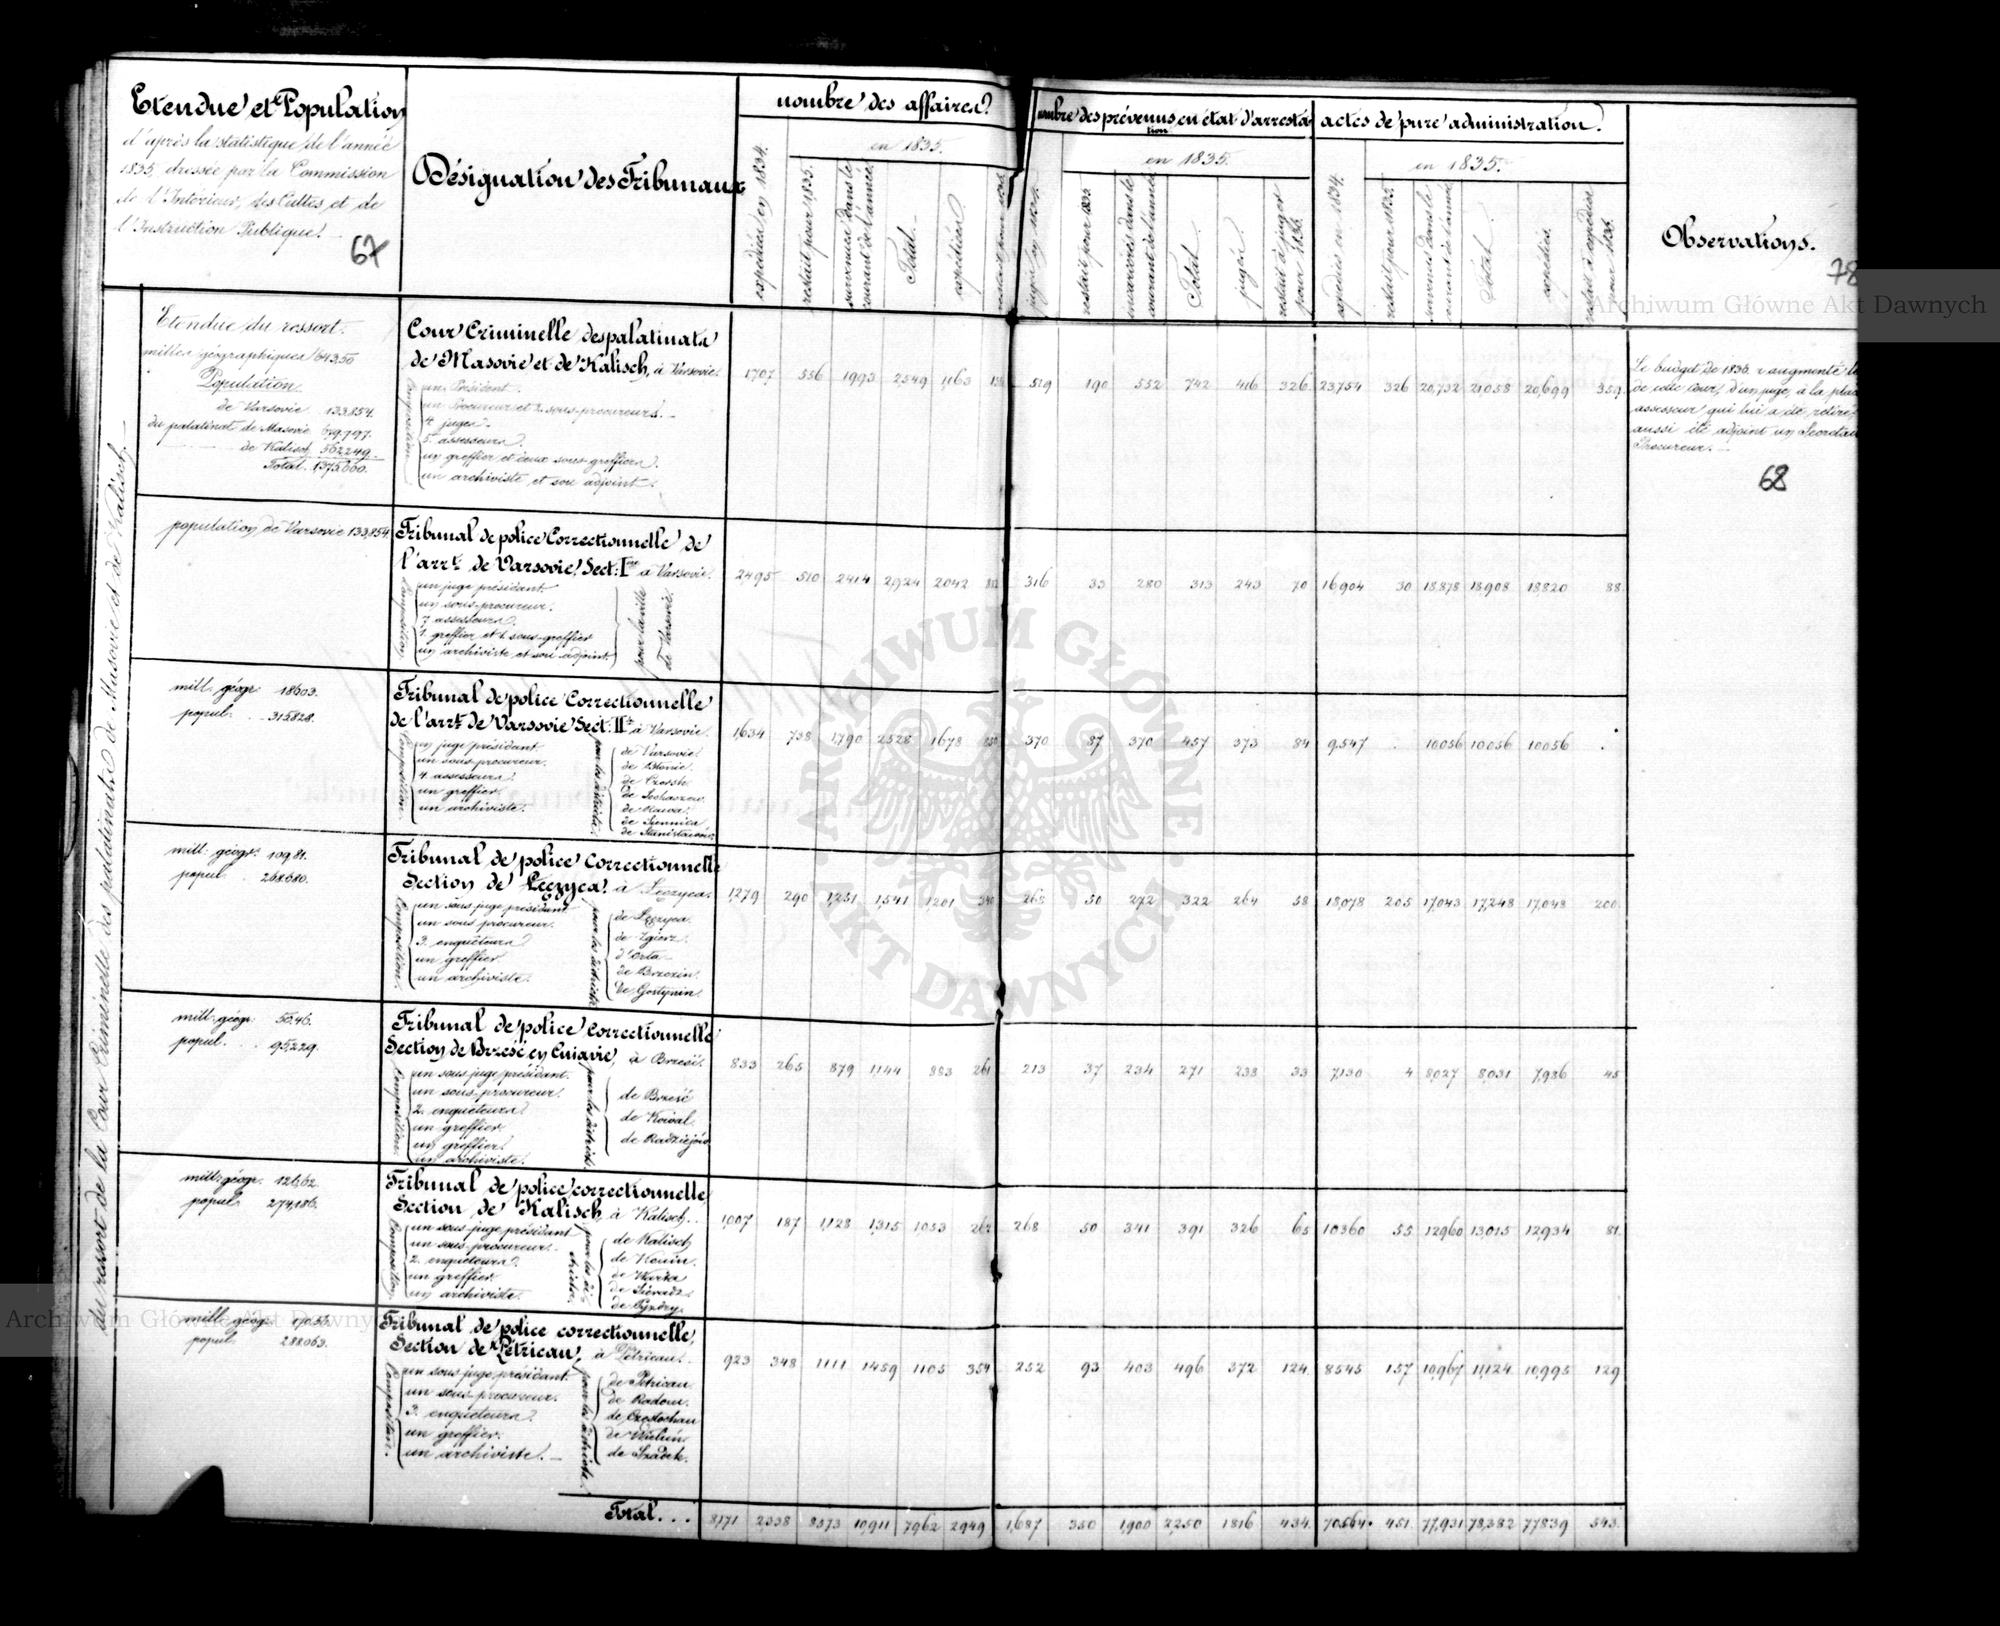 Etendue et Population
d'après la statistique de l'année
1835, dressée par la Commission
de l'Intérieur, des Cultes et de
l'Instruction Publique.
67
Désignation des Tribunaux
nombre des affaires
expédiées en 1834.
en 1835.
restait pour 1835.
survenues dans le courant de l'année
Total
expédiées
nombre des prévenus en état d'arrestation
jugés en 1834.
en 1835.
restait pour 1835
courant de l'année
Total
jugés
restait à juger pour 1836.
actes de pure administration.
expédiés en 1834.
en 1835.
restait pour 1835.
survenus dans le courant de l'année
Total
expédiés.
restait à expédier pour 1836.
Observations.
78
du ressort de la Cour Criminelle des palatinats de Masovie et de Kalisch.
Etendue du ressort.
milles géographiques 643,50
Population.
de Varsovie 133,854.
du palatinat de Masovie 679,797.
de Kalisch 562,249.
Total 1375,000.
Cour Criminelle des palatinats
de Masovie et de Kalisch, à Varsovie.
Composition
un Président.
un Procureur et 2. sous-procureurs.
4 juges.
5. assesseurs.
un greffier et deux sous-greffiers.
un archiviste et son adjoint.
1707 556 1993 2549 1163 519 190 552 742 416 326 23,754 326 20,732 21,058 20,699 359.
Le budget de 1836. a augmenté
de cette Cour, d'un juge, à la place
assesseur qui lui a été retiré
aussi été adjoint un Secrétaire
Procureur.
68
population de Varsovie 133,854.
Tribunal de police Correctionnelle de
l'arrt. de Varsovie, Sect: Ire à Varsovie.
Composition
un juge présidant.
un sous-procureur.
7 assesseurs.
1. greffier et 1. sous-greffier
un archiviste et son adjoint.
pour la ville de Varsovie.
2,495 510 2414 2,924 2042 882 316 33 280 313 243 70 16,904 30 18,878 18,908 18,820 88.
mill. géogr. 186,03.
popul. 315,828.
Tribunal de police Correctionnelle
de l'arrt. de Varsovie Sect. IIe à Varsovie.
Composition
un juge présidant.
un sous-procureur.
4. assesseurs.
un greffier.
un archiviste.
pour les districts
de Varsovie.
de Błonie.
de Czersk.
de Sochaczew.
de Rawa.
de Siennica.
de Stanisławów.
1,634 738 1,790 2528 1678 850 370 87 370 457 373 84 9,547 . 10,056 10,056 10,056 .
mill: géogr. 109,81.
popul. 268,680.
Tribunal de police Correctionnelle
Section de Łęczyca, à Łęczyca.
Composition
un sous juge présidant.
un sous procureur.
3. enquêteurs.
un greffier.
un archiviste.
pour les districts
de Łęczyca.
de Zgierz.
d'Orła
de Brzezin.
de Gostynin.
1,279 290 1,251 1,541 1201 340 268 50 272 322 264 58 18,078 205 17,043 17,248 17,048 200.
mill: géogr. 50,46.
popul. 95,229.
Tribunal de police Correctionnelle
Section de Brześć en Cuiavie, à Brześć.
Composition
un sous juge présidant.
un sous-procureur.
2. enquêteurs.
un greffier.
un greffier.
un archiviste.
pour les districts
de Brześć
de Kowal.
de Radziejów
833 265 879 1,144 883 261 213 37 234 271 238 33 7,130 4 8,027 8,031 7,986 45
mill: géogr. 126,62.
popul. 274,186.
Tribunal de police correctionnelle,
Section de Kalisch, à Kalisch.
Composition
un sous-juge présidant
un sous-procureur.
2. enquêteurs.
un greffier.
un archiviste.
pour les districts
de Kalisch
de Konin.
de Warta
de Sieradz.
de Pyzdry.
1,007 187 1,128 1,315 1053 262 268 50 341 391 326 65 10,360 55 12,960 13,015 12,934 81.
mill: géogr. 170,56.
popul. 288,063.
Tribunal de police correctionnelle,
Section de Pétricau, à Pétricau.
Composition.
un sous juge présidant.
un sous-procureur.
3. enquêteurs.
un greffier.
un archiviste.
pour les districts
de Petricau.
de Radom.
de Częstochau
de Wieluń.
de Szadek.
923 348 1111 1459 1105 354 252 93 403 496 372 124. 8,545 157 10,967 11,124 10,995 129
Total. . .
8,171 2,338 8573 10,911 7962 2949 1,687 350 1,900 2,250 1816 434. 70,564. 451. 77,931 78,382 77,839 543.
Archiwum Główne Akt Dawnych
ARCHIWUM GŁÓWNE AKT DAWNYCH
Archiwum Główne Akt Dawnych